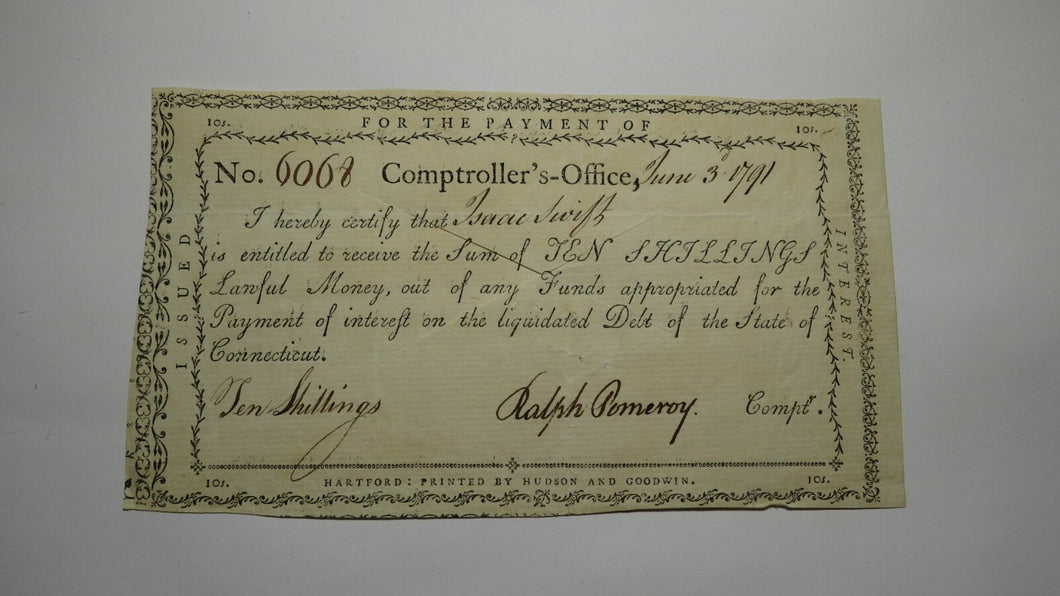 10s. FOR THE PAYMENT OF 10s.
No. 6068 Comptroller's-Office, June 3d 1791
I hereby certify that Isaac Swift
is entitled to receive the Sum of TEN SHILLINGS
Lawful Money, out of any Funds appropriated for the
Payment of intereſt on the liquidated Debt of the State of
Connecticut.
Ten Shillings Ralph Pomeroy. Comptr.
10s. HARTFORD: PRINTED BY HUDSON AND GOODWIN. 10s.
ISSUED
INTEREST.